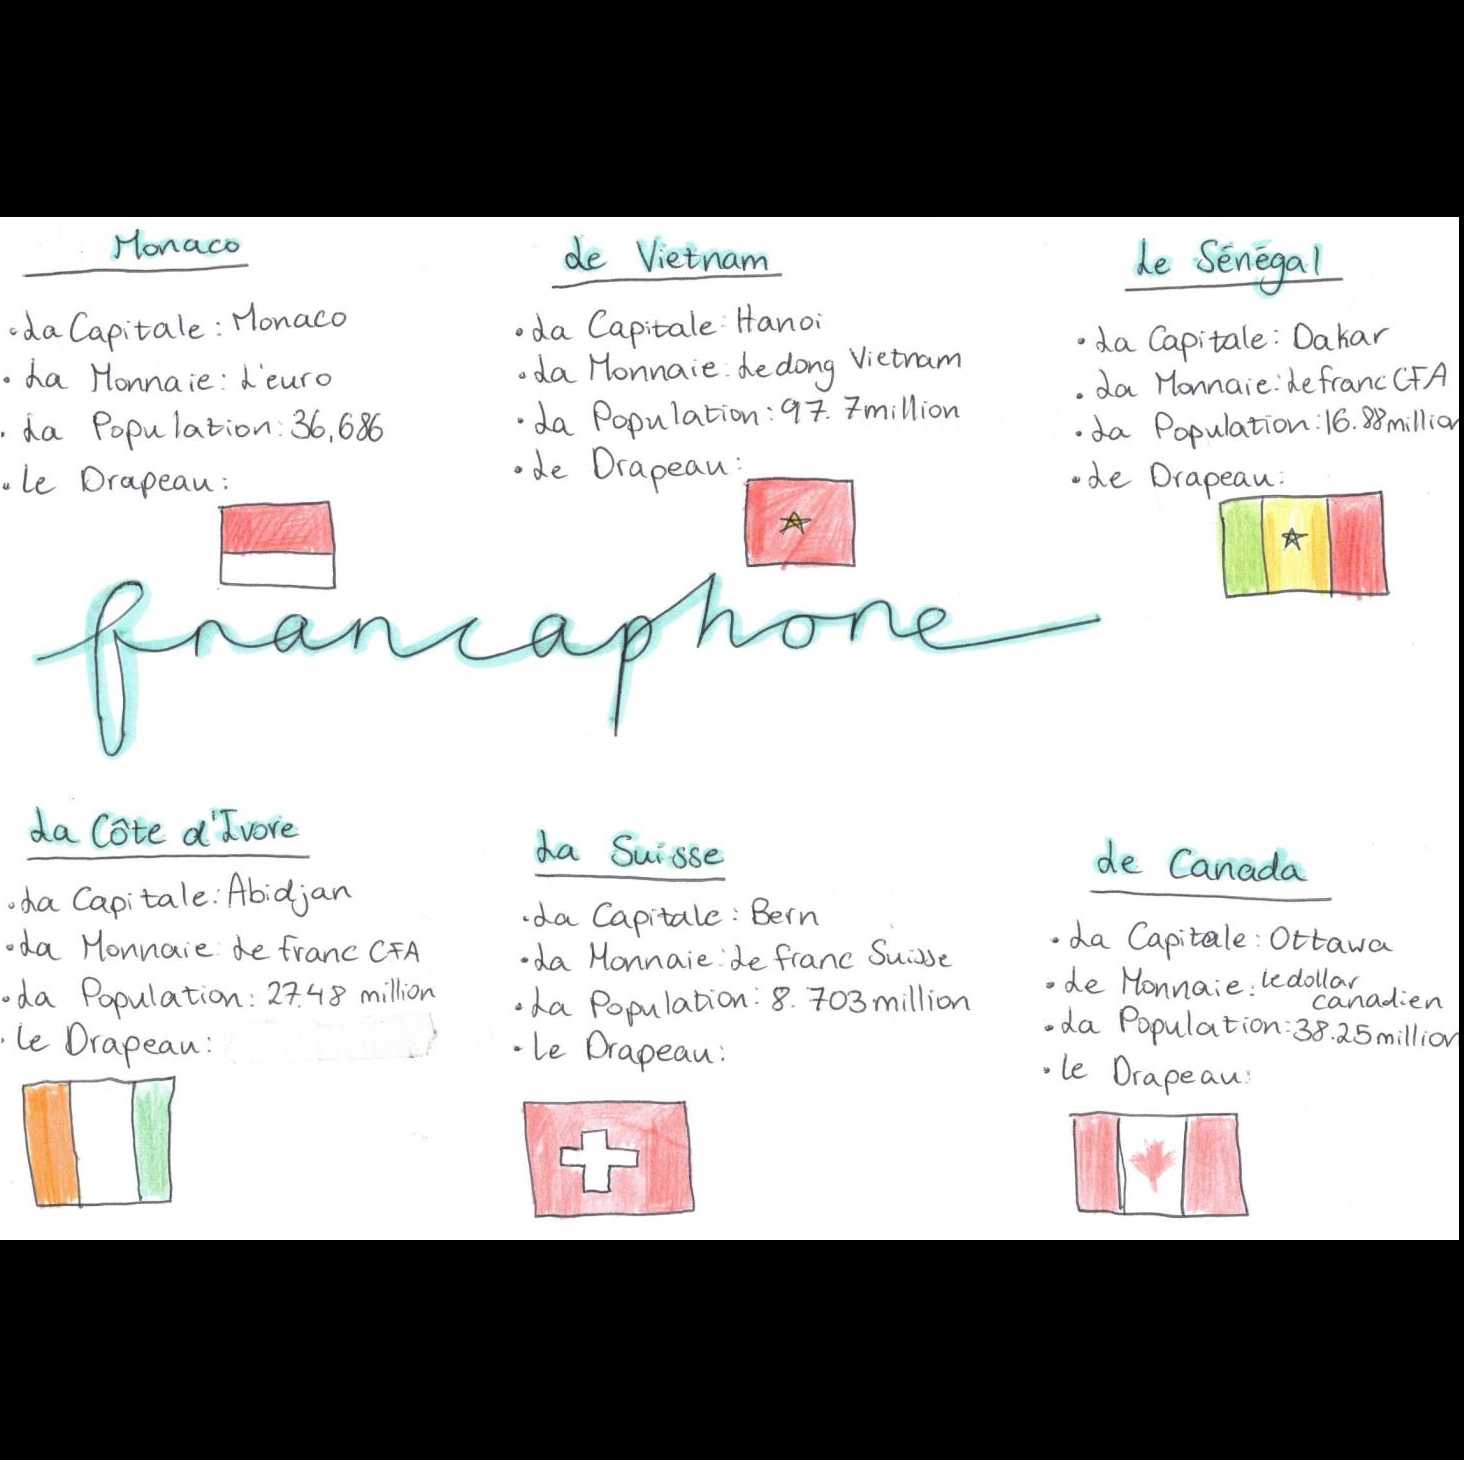 Monaco
La Capitale: Monaco
La Monnaie: L'euro
La Population: 36,686
Le Drapeau:
Le Vietnam
La Capitale: Hanoi
La Monnaie: Le dong Vietnam
La Population: 97.7 million
Le Drapeau:
Le Sénégal
La Capitale: Dakar
La Monnaie: Le franc CFA
La Population: 16.88 million
Le Drapeau:
francaphone
La Côte d'Ivore
La Capitale: Abidjan
La Monnaie: Le franc CFA
La Population: 27.48 million
Le Drapeau:
La Suisse
La Capitale: Bern
La Monnaie: Le franc Suisse
La Population: 8.703 million
Le Drapeau:
Le Canada
La Capitale: Ottawa
Le Monnaie: le dollar
canadien
La Population: 38.25 million
Le Drapeau: